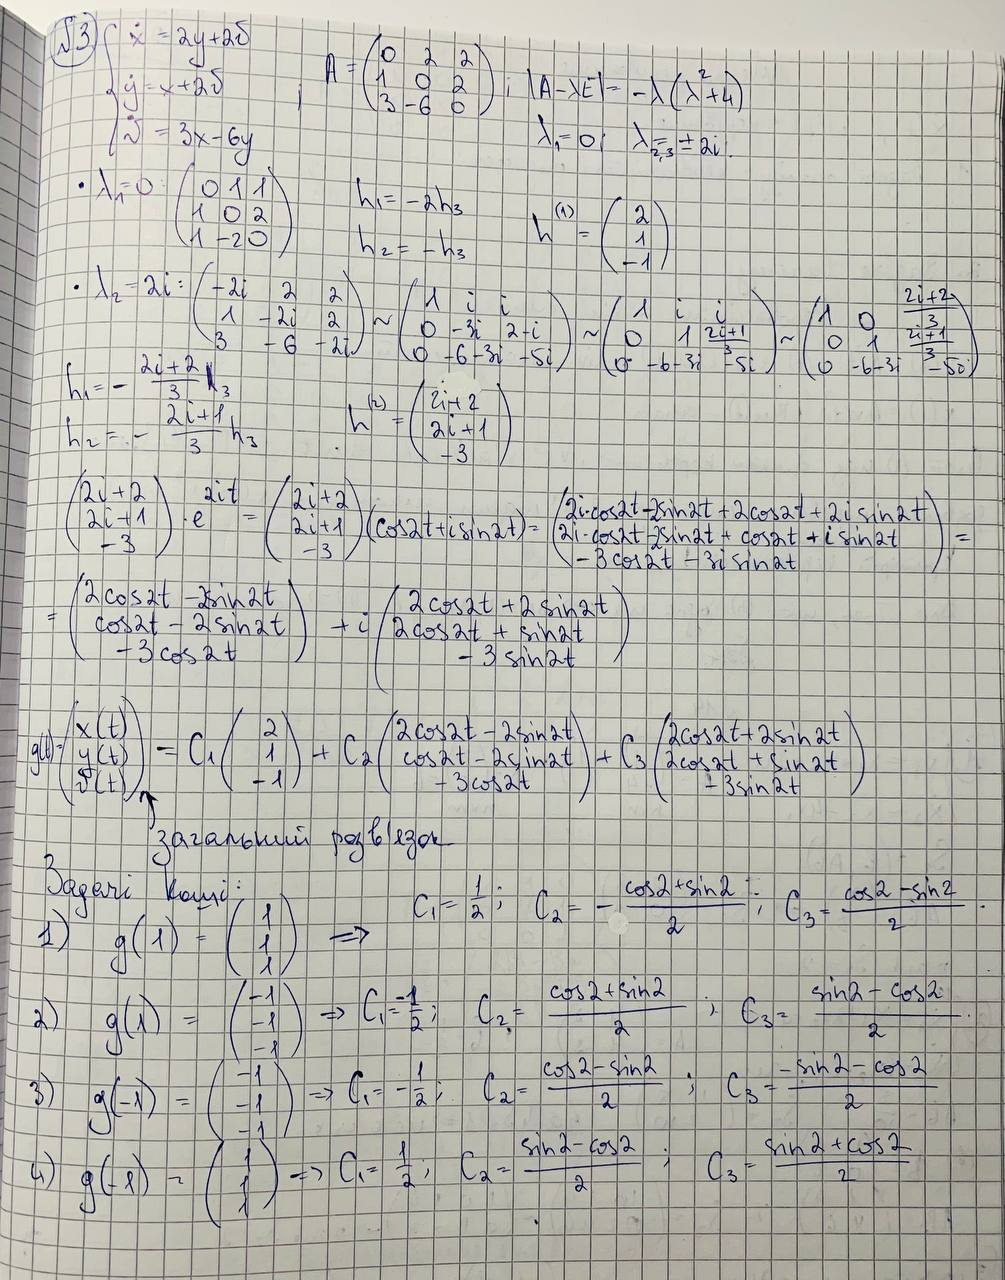 №3) { ẋ = 2y+2v
ẏ = x+2v
v̇ = 3x-6y
; A = (0 2 2
1 0 2
3 -6 0) ; |A-λE| = -λ(λ²+4)
λ₁=0; λ₂,₃=±2i.
• λ₁=0: (0 1 1
1 0 2
1 -2 0)
h₁ = -2h₃
h₂ = -h₃
h⁽¹⁾ = (2
1
-1)
• λ₂ = 2i: (-2i 2 2
1 -2i 2
3 -6 -2i) ~ (1 i i
0 -3i 2-i
0 -6-3i -5i) ~ (1 i i
0 1 (2i+1)/3
0 -6-3i -5i) ~ (1 0 (2i+2)/3
0 1 (2i+1)/3
0 -6-3i -5i)
h₁ = - (2i+2)/3 h₃
h₂ = - (2i+1)/3 h₃
h⁽²⁾ = (2i+2
2i+1
-3)
(2i+2
2i+1
-3) · e^(2it) = (2i+2
2i+1
-3)(cos2t+isin2t) = (2i·cos2t-2sin2t+2cos2t+2isin2t
2i·cos2t-2sin2t+cos2t+isin2t
-3cos2t-3isin2t) =
= (2cos2t-2sin2t
cos2t-2sin2t
-3cos2t) + i (2cos2t+2sin2t
2cos2t+sin2t
-3sin2t)
g(t)=(x(t)
y(t)
v(t)) = C₁(2
1
-1) + C₂(2cos2t-2sin2t
cos2t-2sin2t
-3cos2t) + C₃(2cos2t+2sin2t
2cos2t+sin2t
-3sin2t)
загальний розв'язок
Задачі Коші:
1) g(1) = (1
1
1) => C₁=1/2; C₂ = - (cos2+sin2)/2; C₃ = (cos2-sin2)/2.
2) g(1) = (-1
-1
-1) => C₁ = -1/2; C₂ = (cos2+sin2)/2; C₃ = (sin2-cos2)/2.
3) g(-1) = (-1
-1
-1) => C₁ = -1/2; C₂ = (cos2-sin2)/2; C₃ = (-sin2-cos2)/2
4) g(-1) = (1
1
1) => C₁ = 1/2; C₂ = (sin2-cos2)/2; C₃ = (sin2+cos2)/2